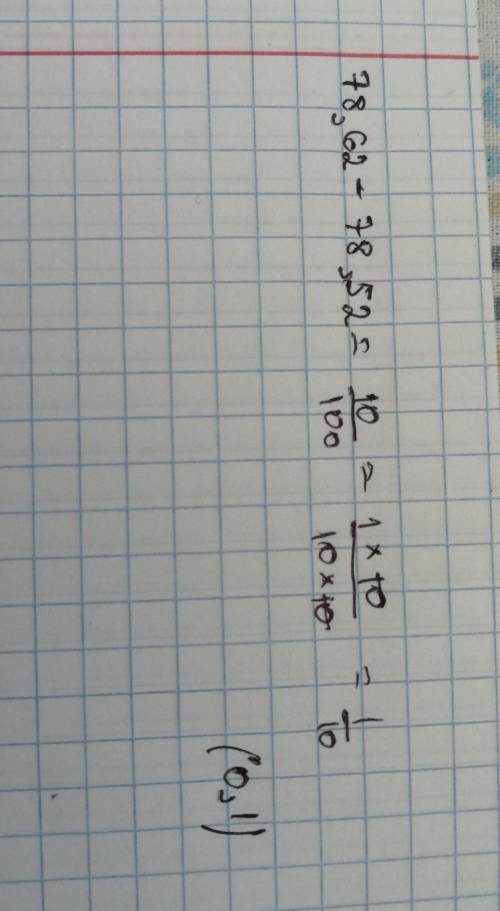 78,62 - 78,52 = 10/100 = 1 × 10/10 × 10 = 1/10
(0,1)